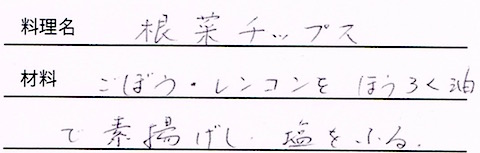 料理名 根菜チップス
材料 ごぼう・レンコンを ほうろく油
で素揚げし 塩をふる.